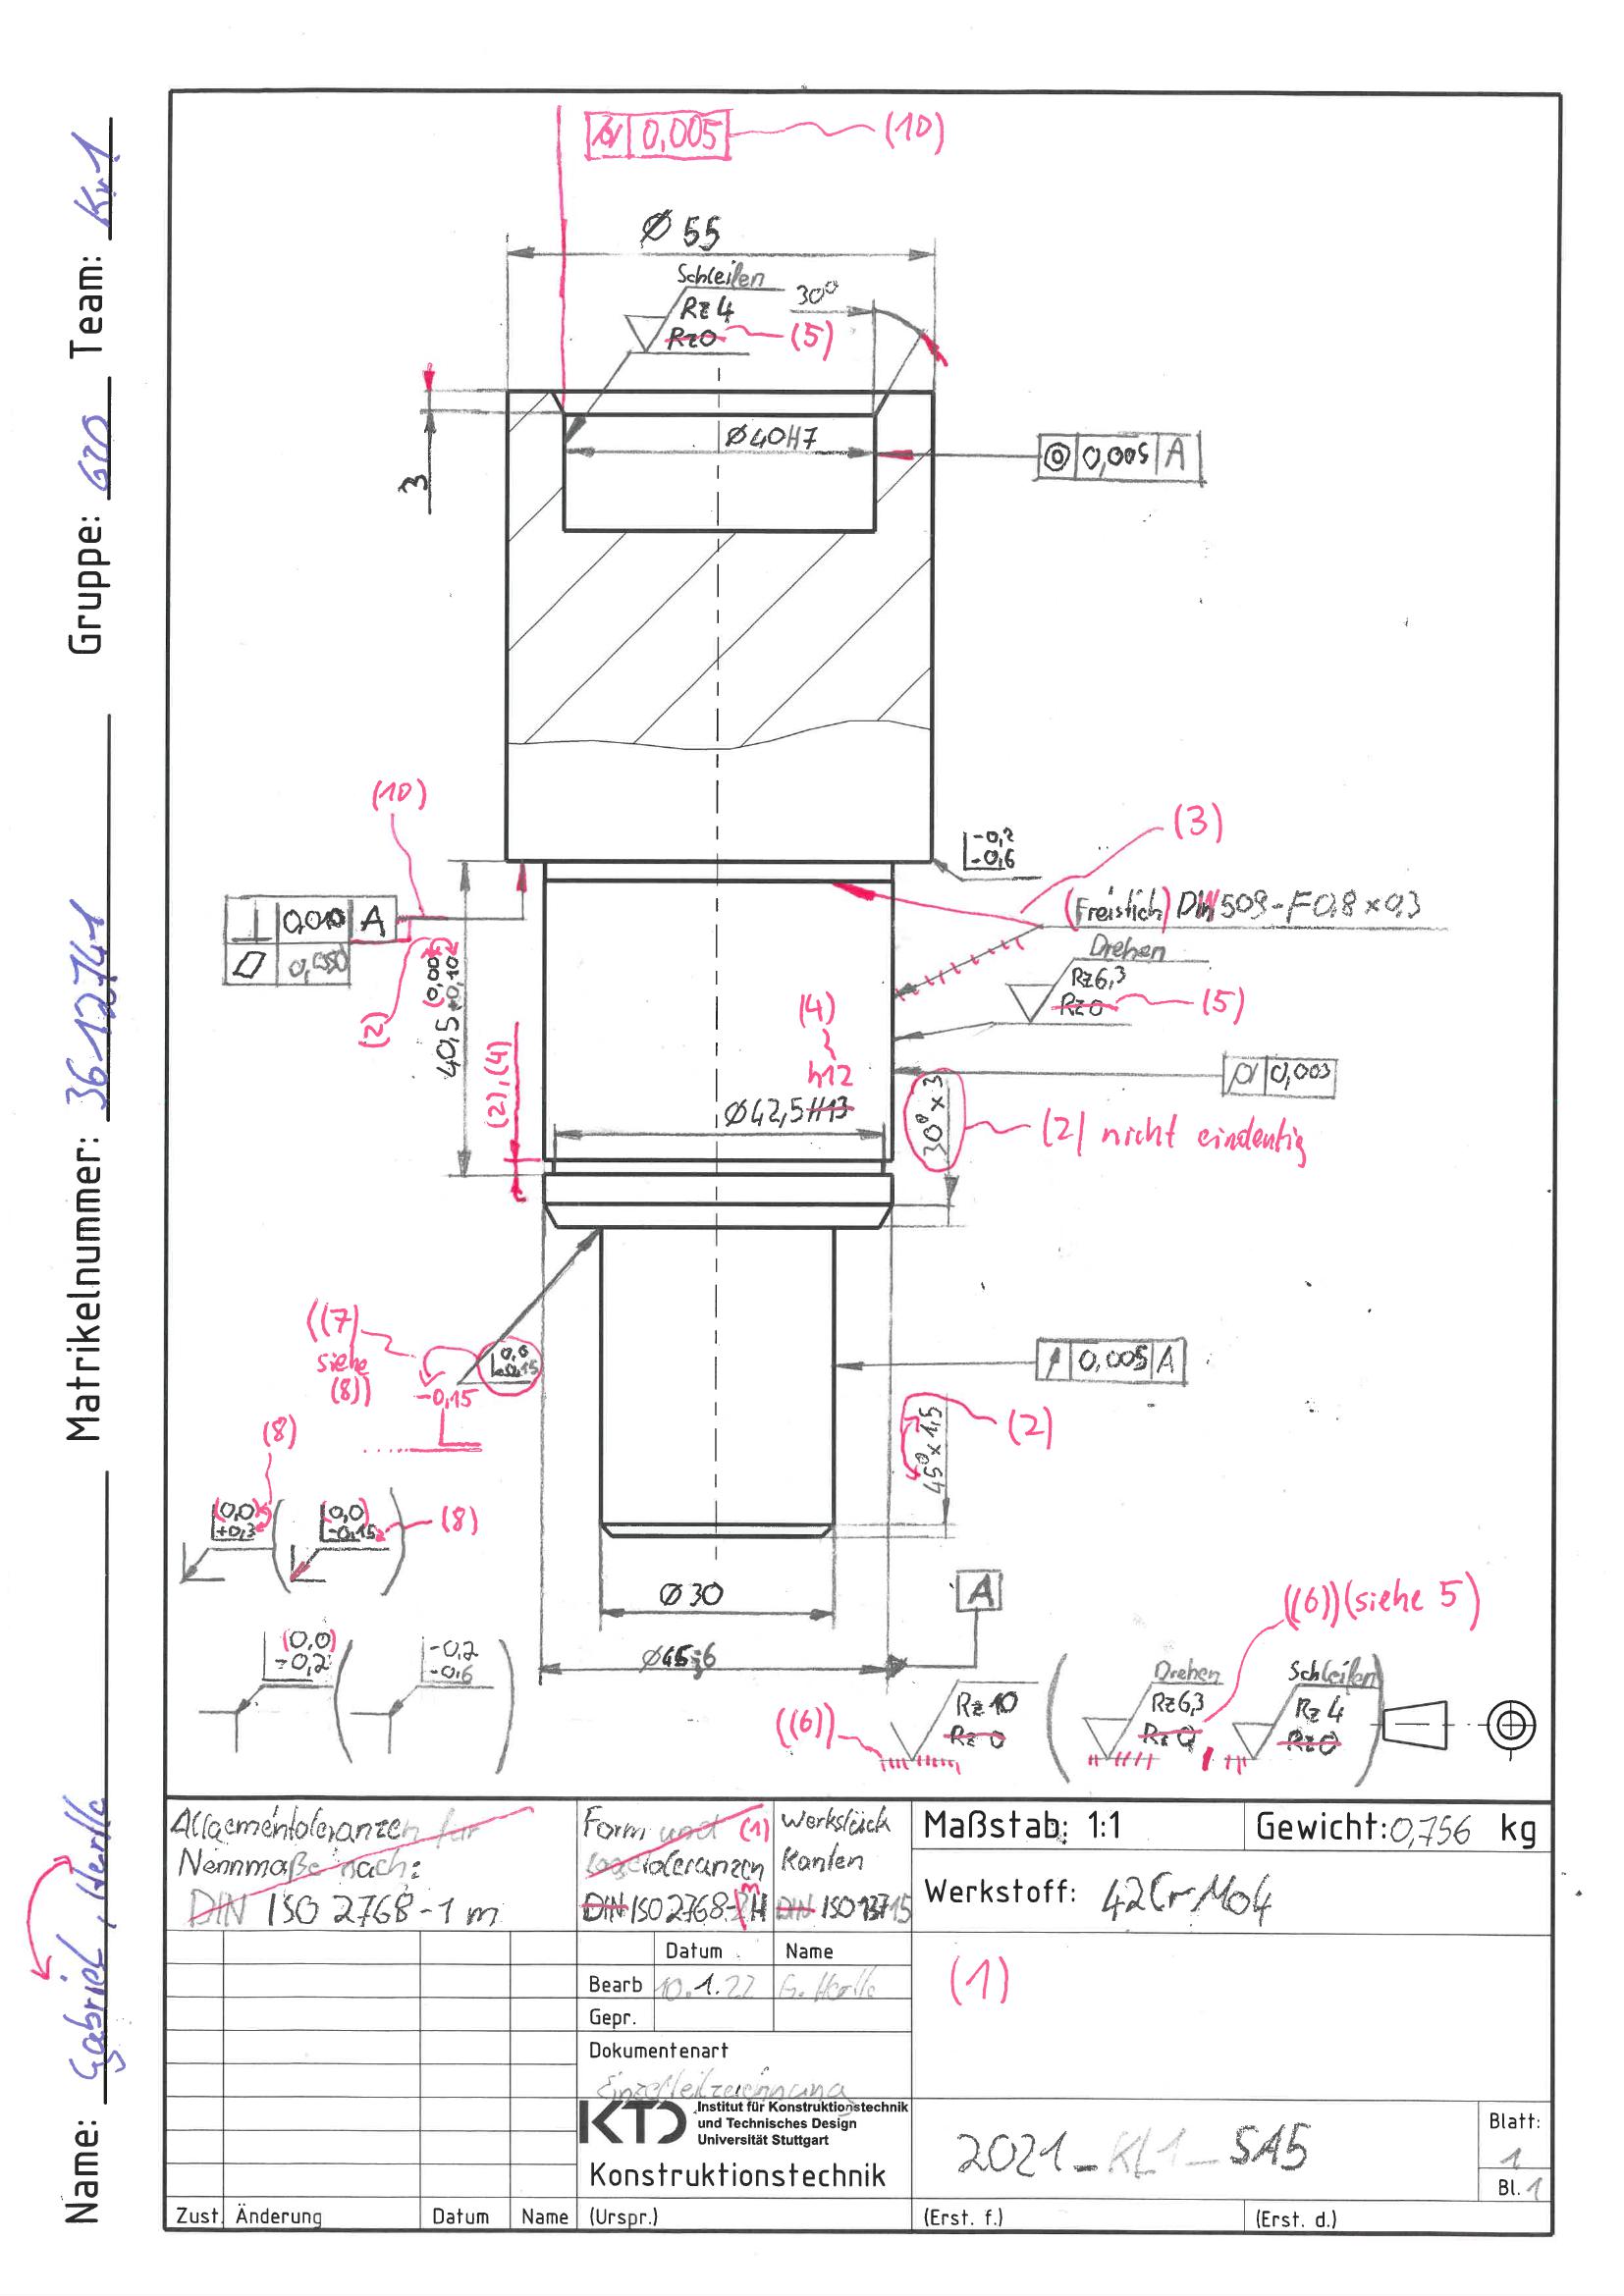 Name: Gabriel, Herlle Matrikelnummer: 3612741 Gruppe: G20 Team: Kr1
0,005 (10)
Ø 55
Schleifen
Rz 4
Rz 0 (5)
30°
Ø40H7
0,005 A
3
(10)
(3)
-0,2
-0,6
(Freistich) DIN 509-F0,8 x 0,3
⊥ 0,010 A
0,050
(2)
40,5 +0,10
(0,00)
Drehen
Rz6,3
Rz 0 (5)
(4)
h12
Ø42,5 H13
(2),(4)
0,003
30° x 3
(2) nicht eindeutig
((7)
siehe
(8))
-0,15
0,005 A
45° x 1,5
(2)
(8)
(0,0)
+0,3
(0,0)
-0,15
(8)
Ø30
A
((6))(siehe 5)
(0,0)
-0,2
-0,2
-0,6
((6))
Rz 10
Rz 0
Drehen
Rz6,3
Rz 0
Schleifen
Rz 4
Rz 0
Allgemeintoleranzen für
Nennmaße nach:
DIN ISO 2768-1 m
Form und (1)
Lagetoleranzen
DIN ISO 2768- m H
Werkstück
Kanten
DIN ISO 13715
Maßstab: 1:1
Gewicht: 0,756 kg
Werkstoff: 42CrMo4
Datum Name
Bearb 10.1.22 G. Herlle
Gepr.
(1)
Dokumentenart
Einzelteilzeichnung
KTD Institut für Konstruktionstechnik
und Technisches Design
Universität Stuttgart
Konstruktionstechnik
2021_KL1_SA5
Blatt:
1
Bl. 1
Zust. Änderung Datum Name (Urspr.) (Erst. f.) (Erst. d.)